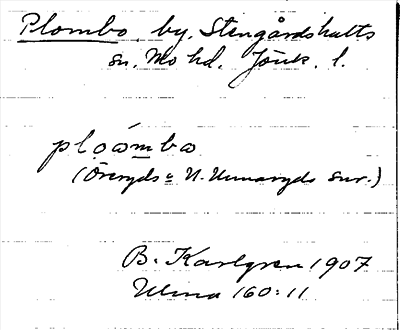 Plombo, by, Stengårdshults
sn. Mo hd. Jönk. l.
ploómbo
(Öreryds o N. Unnaryds snr.)
B. Karlgren 1907
Ulma 160:11